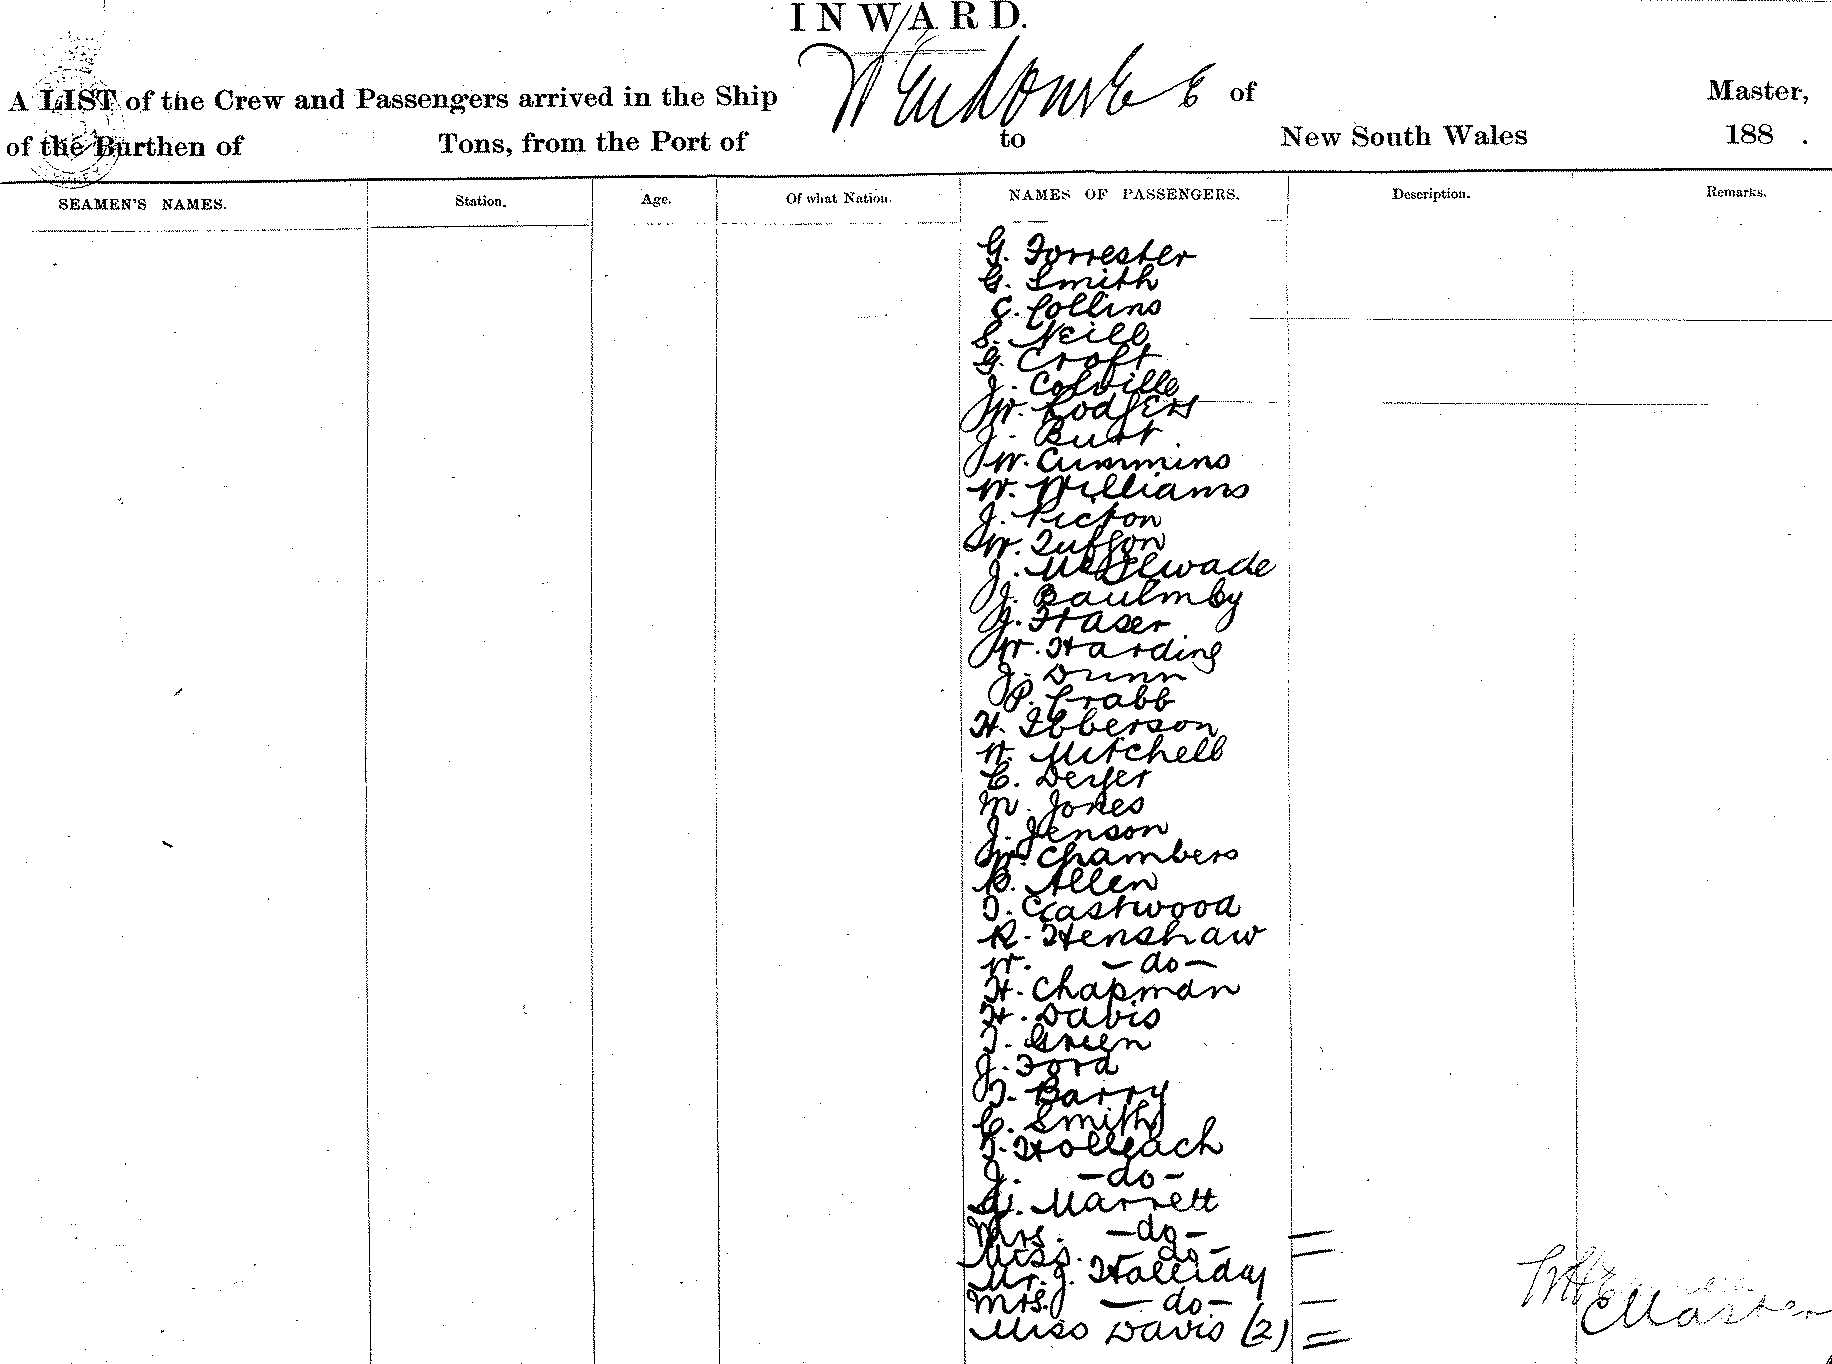 INWARD.
A LIST of the Crew and Passengers arrived in the Ship of Master,
of the Burthen of Tons, from the Port of to New South Wales 188 .
SEAMEN'S NAMES. Station. Age. Of what Nation. NAMES OF PASSENGERS. Description. Remarks.
G. Forrester
G. Smith
C. Collins
S. Neill
G. Croft
J. Colville
W. Rodgers
J. Burt
W. Cummins
W. Williams
J. Picton
W.
J.
J. Baulmby
J. Fraser
W. Harding
J. Dunn
P. Crabb
H. Ibberson
W. Mitchell
C.
M. Jones
J. Jenson
W. Chambers
B. Allen
T. Eastwood
R. Henshaw
W. - do -
H. Chapman
H. Davis
T. Green
J. Ford
T. Barry
C. Smith
T. Holleach
J. - do -
Marrett
Mrs. - do -
Miss. - do -
Mr. J. Halliday
Mrs. - do -
Miss Davis (2)
Master